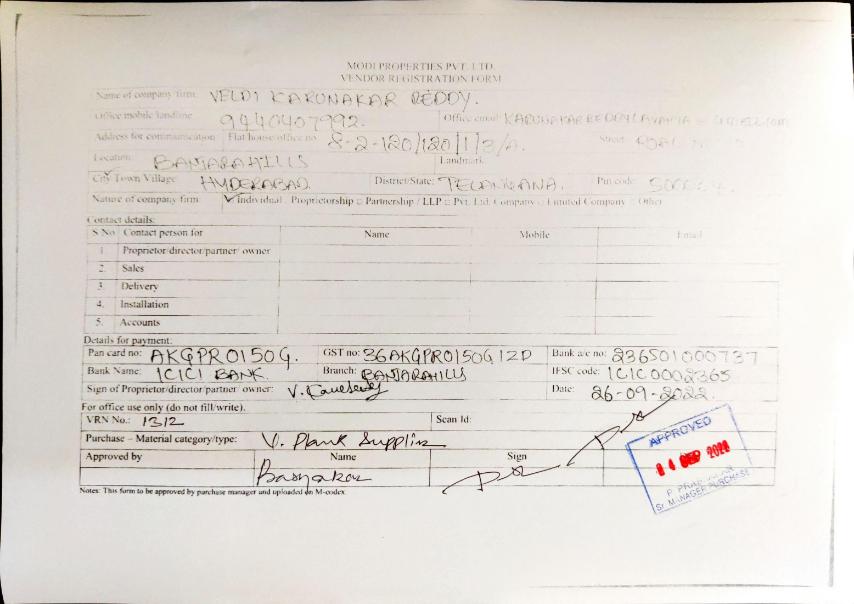 MODI PROPERTIES PVT. LTD.
VENDOR REGISTRATION FORM
Name of company firm: VELDI KARUNAKAR REDDY.
Office mobile/landline 9440407992. Office email: KARUNAKARREDDY
Address for communication Flat/house/office no 8-2-120/120/1/3/A. Street: ROAD
Location: BANJARAHILLS Landmark:
City Town Village: HYDERABAD. District/State: TELANGANA. Pin code:
Nature of company firm: Individual □ Proprietorship □ Partnership / LLP □ Pvt. Ltd. Company □ Limited Company □ Other
Contact details:
S No Contact person for Name Mobile Email
1. Proprietor/director/partner/ owner
2. Sales
3. Delivery
4. Installation
5. Accounts
Details for payment:
Pan card no: AKGPR0150G. GST no: 36AKGPR0150G1ZD Bank a/c no: 236501000737
Bank Name: ICICI BANK. Branch: BANJARAHILLS IFSC code: ICIC0002365
Sign of Proprietor/director/partner/ owner: Date: 26-09-2022.
For office use only (do not fill/write).
VRN No.: 1312 Scan Id:
Purchase – Material category/type: V. Plank Supplier
Approved by Name Sign
Notes: This form to be approved by purchase manager and uploaded on M-codex.
APPROVED
SEP 2022
Sr. MANAGER PURCHASE